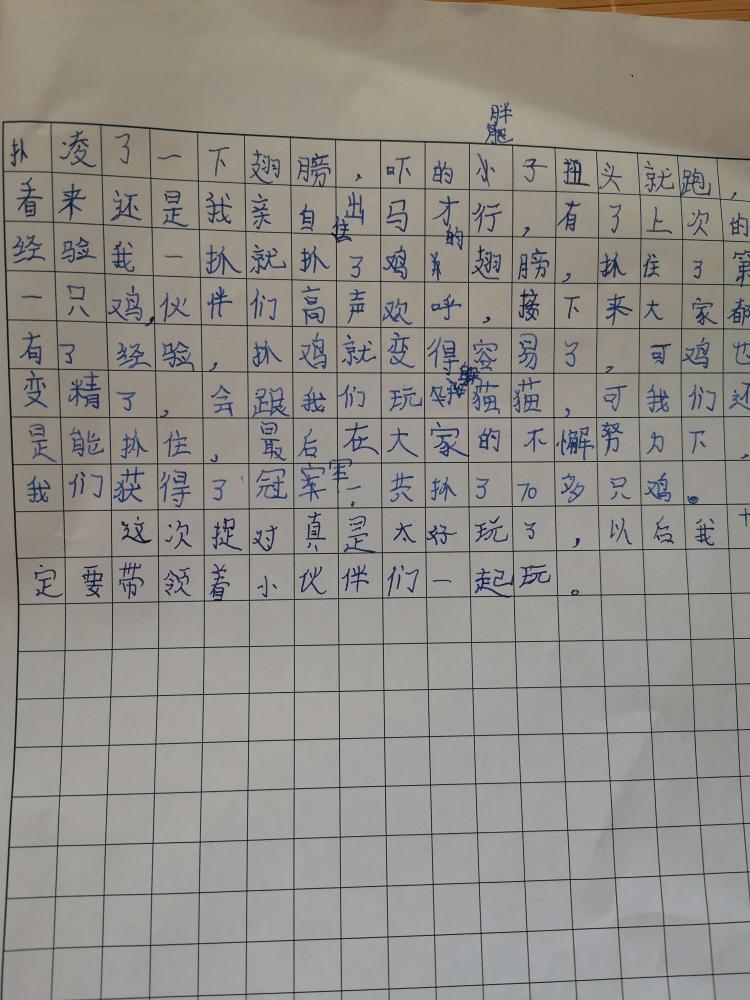 胖
扑凌了一下翅膀，吓的小子扭头就跑，
看来还是我亲自出马才行，有了上次的
经验我一抓就抓住了鸡的翅膀，抓住了第
一只鸡，伙伴们高声欢呼，接下来大家都
有了经验，抓鸡就变得容易了，可鸡也
变精了，会跟我们玩躲猫猫，可我们还
是能抓住，最后在大家的不懈努力下，
我们获得了冠军，一共抓了70多只鸡。
这次捉对真是太好玩了，以后我
定要带领着小伙伴们一起玩。